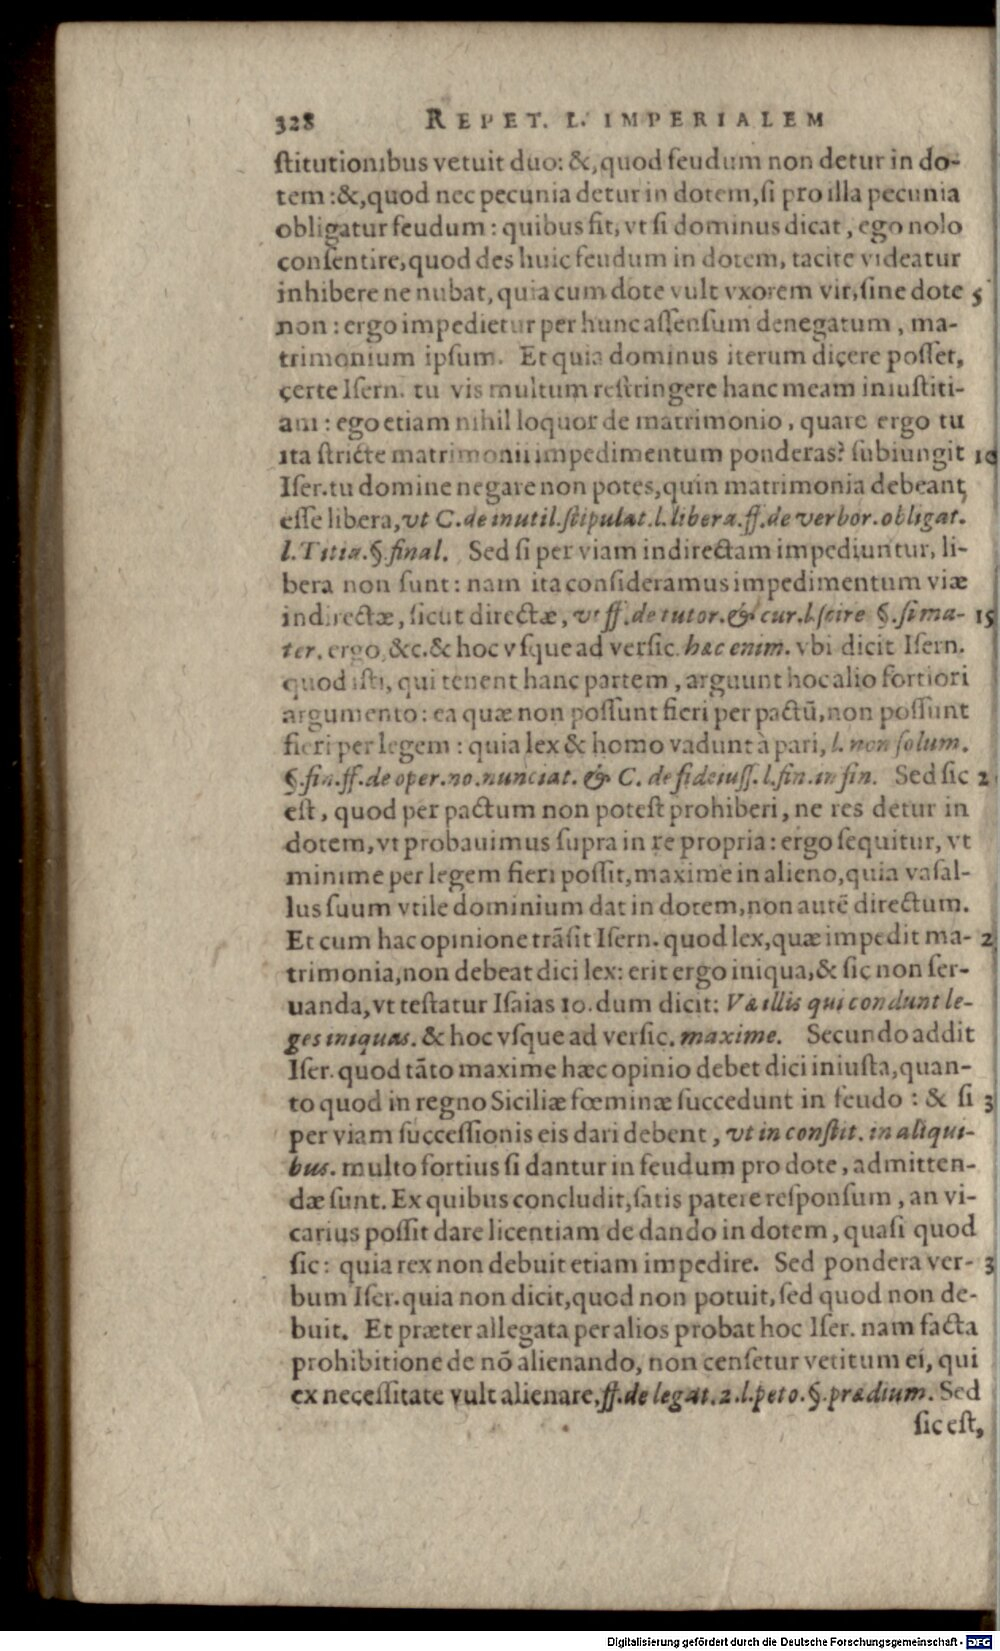 328 REPET. L. IMPERIALEM
ſtitutionibus vetuit duo: &, quod feudum non detur in do-
tem: &, quod nec pecunia detur in dotem, ſi pro illa pecunia
obligatur feudum: quibus fit, vt ſi dominus dicat, ego nolo
conſentire, quod des huic feudum in dotem, tacite videatur
inhibere ne nubat, quia cum dote vult vxorem vir, ſine dote 5
non: ergo impedietur per hunc aſſenſum denegatum, ma-
trimonium ipſum. Et quia dominus iterum dicere poſſet,
certe Iſern. tu vis multum reſtringere hanc meam iniuſtiti-
am: ego etiam nihil loquor de matrimonio, quare ergo tu
ita ſtricte matrimonii impedimentum ponderas? ſubiungit 10
Iſer. tu domine negare non potes, quin matrimonia debeant
eſſe libera, vt C. de inutil. ſtipulat. l. libera. ff. de verbor. obligat.
l. Titia. §. final. Sed ſi per viam indirectam impediuntur, li-
bera non ſunt: nam ita conſideramus impedimentum viæ
indirectæ, ſicut directæ, vt ff. de tutor. & cur. l. ſcire §. ſi ma- 15
ter. ergo, &c. & hoc vſque ad verſic. hæc enim. vbi dicit Iſern.
quod iſti, qui tenent hanc partem, arguunt hoc alio fortiori
argumento: ea quæ non poſſunt fieri per pactū, non poſſunt
fieri per legem: quia lex & homo vadunt à pari, l. non ſolum.
§. fin. ff. de oper. no. nunciat. & C. de fideiuſſ. l. fin. in fin. Sed ſic 2
eſt, quod per pactum non poteſt prohiberi, ne res detur in
dotem, vt probauimus ſupra in re propria: ergo ſequitur, vt
minime per legem fieri poſſit, maxime in alieno, quia vaſal-
lus ſuum vtile dominium dat in dotem, non autē directum.
Et cum hac opinione trāſit Iſern. quod lex, quæ impedit ma- 2
trimonia, non debeat dici lex: erit ergo iniqua, & ſic non ſer-
uanda, vt teſtatur Iſaias 10. dum dicit: Væ illis qui condunt le-
ges iniquas. & hoc vſque ad verſic. maxime. Secundo addit
Iſer. quod tāto maxime hæc opinio debet dici iniuſta, quan-
to quod in regno Siciliæ fœminæ ſuccedunt in feudo: & ſi 3
per viam ſucceſſionis eis dari debent, vt in conſtit. in aliqui-
bus. multo fortius ſi dantur in feudum pro dote, admitten-
dæ ſunt. Ex quibus concludit, ſatis patere reſponſum, an vi-
carius poſſit dare licentiam de dando in dotem, quaſi quod
ſic: quia rex non debuit etiam impedire. Sed pondera ver- 3
bum Iſer. quia non dicit, quod non potuit, ſed quod non de-
buit. Et præter allegata per alios probat hoc Iſer. nam facta
prohibitione de nō alienando, non cenſetur vetitum ei, qui
ex neceſſitate vult alienare, ff. de legat. 2. l. peto. §. prædium. Sed
ſic eſt,
Digitalisierung gefördert durch die Deutsche Forschungsgemeinschaft - DFG